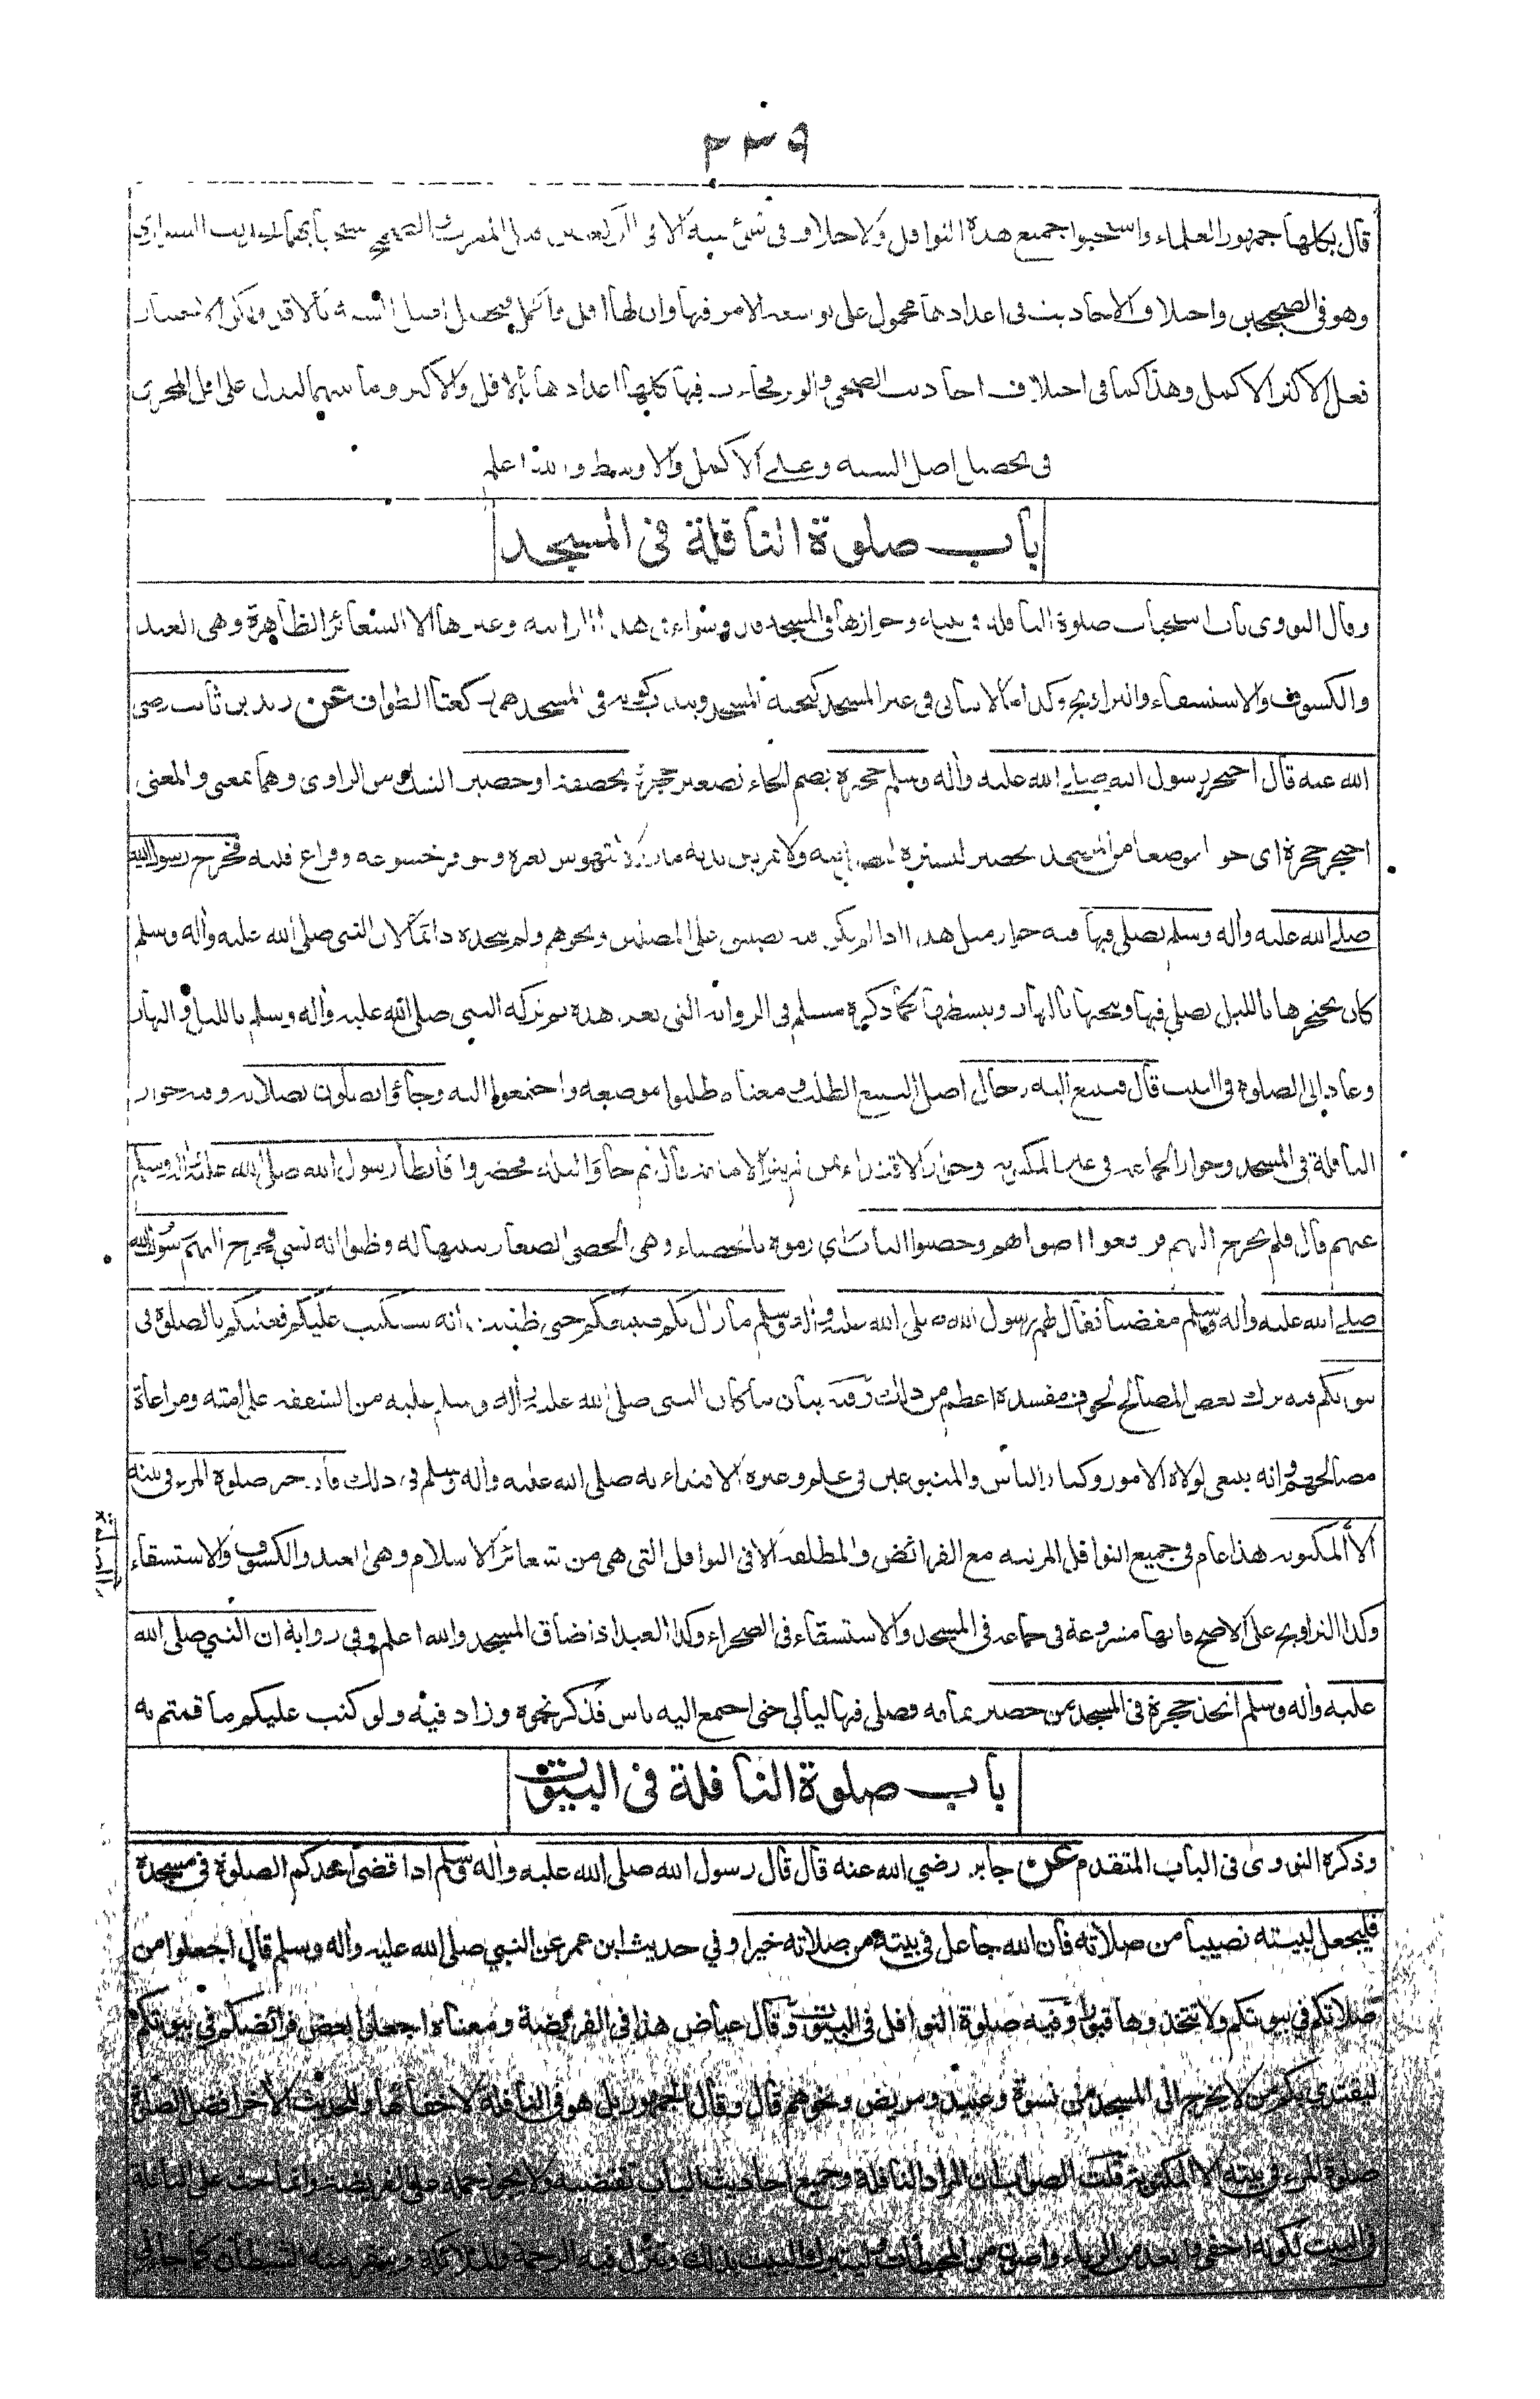 ٣٣٩
قال بكلها جمهور العلماء واستحبوا جميع هذه النوافل ولا خلاف في شئ منها الا في الركعتين قبل المغرب
وهو في الصحيحين واختلاف الاحاديث في اعدادها محمول على توسعة الامر فيها وان لها اقل واكمل فيحصل اصل السنة بالاقل ولكن الاختيار
فعل الاكثر الاكمل وهذا كما في اختلاف احاديث الضحى والوتر فجاءت فيها كلها اعدادها بالاقل والاكثر وما بينهما ليدل على اقل المجزى
في تحصيل اصل السنة وعلى الاكمل والاوسط والله اعلم
باب صلوة النافلة في المسجد
وقال النووى باب استحباب صلوة النافلة في بيته وجوازها في المسجد وسواء في هذا الراتبة وغيرها الا الشعائر الظاهرة وهى العيد
والكسوف والاستسقاء والتراويح وكذا ما لا يتأتى في غير المسجد كتحية المسجد ويندب كونه في المسجد هى ركعتا الطواف عن زيد بن ثابت رضى
الله عنه قال احتجر رسول الله صلى الله عليه وأله وسلم حجيرة بضم الحاء تصغير حجرة بخصفة او حصير الشك من الراوى وهما بمعنى والمعنى
احتجر حجرة اى حوط موضعا من المسجد بحصير لستره ليصلى فيه ولا يمر بين يديه مار ولا يتهوش بغيره ويتوفر خشوعه وفراغ قلبه فخرج رسول الله
صلى الله عليه وأله وسلم يصلى فيها فيه جواز مثل هذا اذا لم يكن فيه تضييق على المصلين ونحوهم ولم يتخذه دائما لان النبى صلى الله عليه وأله وسلم
كان يحتجرها بالليل يصلى فيها وينحيها بالنهار ويبسطها كما ذكره مسلم في الرواية التى بعد هذه ثم تركه النبى صلى الله عليه وأله وسلم بالليل والنهار
وعاد الى الصلوة في البيت قال فتتبع اليه رجال اصل التتبع الطلب ومعناه طلبوا موضعه واجتمعوا اليه وجاؤا يصلون بصلاته وفيه جواز
النافلة في المسجد وجواز الجماعة في غير المكتوبة وجواز الاقتداء بمن لم ينو الامامة قال ثم جاؤا ليلة فحضروا فابطأ رسول الله صلى الله عليه وأله وسلم
عنهم قال فلم يخرج اليهم فرفعوا اصواتهم وحصبوا الباب اى رموه بالحصباء وهى الحصى الصغار تنبيها له وظنوا انه نسى فخرج اليهم رسول الله
صلى الله عليه وأله وسلم مغضبا فقال لهم رسول الله صلى الله عليه وأله وسلم ما زال بكم صنيعكم حتى ظننت انه سيكتب عليكم فعليكم بالصلوة في
بيوتكم فيه ترك بعض المصالح لخوف مفسدة اعظم من ذلك وفيه بيان ما كان النبى صلى الله عليه وأله وسلم عليه من الشفقة على امته ومراعاة
مصالحهم وانه ينبغى لولاة الامور وكبار الناس والمتبوعين في علم وغيره الاقتداء به صلى الله عليه وأله وسلم في ذلك فان خير صلوة المرء في بيته
الا المكتوبة هذا عام في جميع النوافل المرتبة مع الفرائض والمطلقة الا في النوافل التى هى من شعائر الاسلام وهى العيد والكسوف والاستسقاء
وكذا التراويح على الاصح فانها مشروعة في جماعة في المسجد والاستسقاء في الصحراء وكذا العيد اذا ضاق المسجد والله اعلم وفي رواية ان النبي صلى الله
عليه وأله وسلم اتخذ حجرة في المسجد من حصير بمامه فصلى فيها ليالي حتى اجتمع اليه ناس فذكر نحوه وزاد فيه ولو كتب عليكم ما قمتم به
باب صلوة النافلة في البيوت
وذكره النووى في الباب المتقدم عن جابر رضي الله عنه قال قال رسول الله صلى الله عليه وأله وسلم اذا قضى احدكم الصلوة في مسجده
فليجعل لبيته نصيبا من صلاته فان الله جاعل في بيته من صلاته خيرا وفي حديث ابن عمر عن النبي صلى الله عليه وأله وسلم قال اجعلوا من
صلاتكم في بيوتكم ولا تتخذوها قبورا وفيه صلوة النوافل في البيوت وقال عياض هذا في الفريضة ومعناه اجعلوا بعض فرائضكم في بيوتكم
ليقتدى بكم من لا يخرج الى المسجد من نسوة وعبيد ومريض ونحوهم قال وقال الجمهور بل هو في النافلة لاخفائها والحديث الأخر افضل الصلوة
صلوة المرء في بيته الا المكتوبة قلت الصواب ان المراد النافلة وجميع احاديث الباب تقتضيه ولا يجوز حمله على الفريضة وانما حث على النافلة
في البيت لكونه اخفى وابعد من الرياء واصون من المحبطات وليتبرك البيت بذلك وتنزل فيه الرحمة والملائكة وينفر منه الشيطان كما جاء في